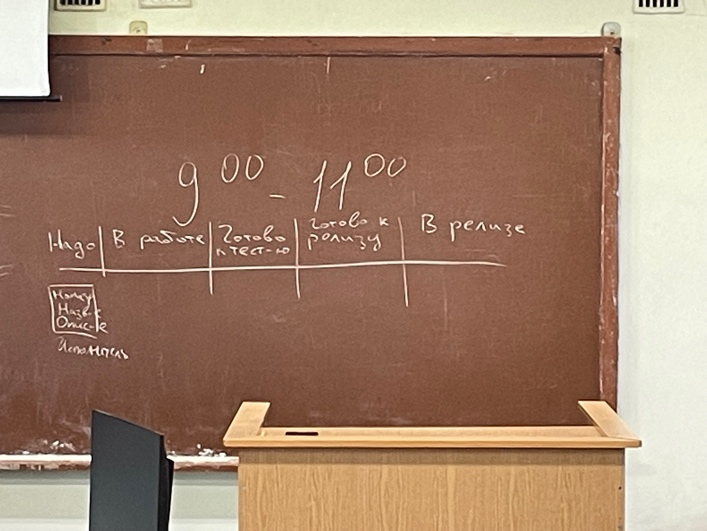 9 00 - 11 00
Надо В работе Готово к тест-ю Готово к релизу В релизе
Назв-е
Опис-е
Исполнитель